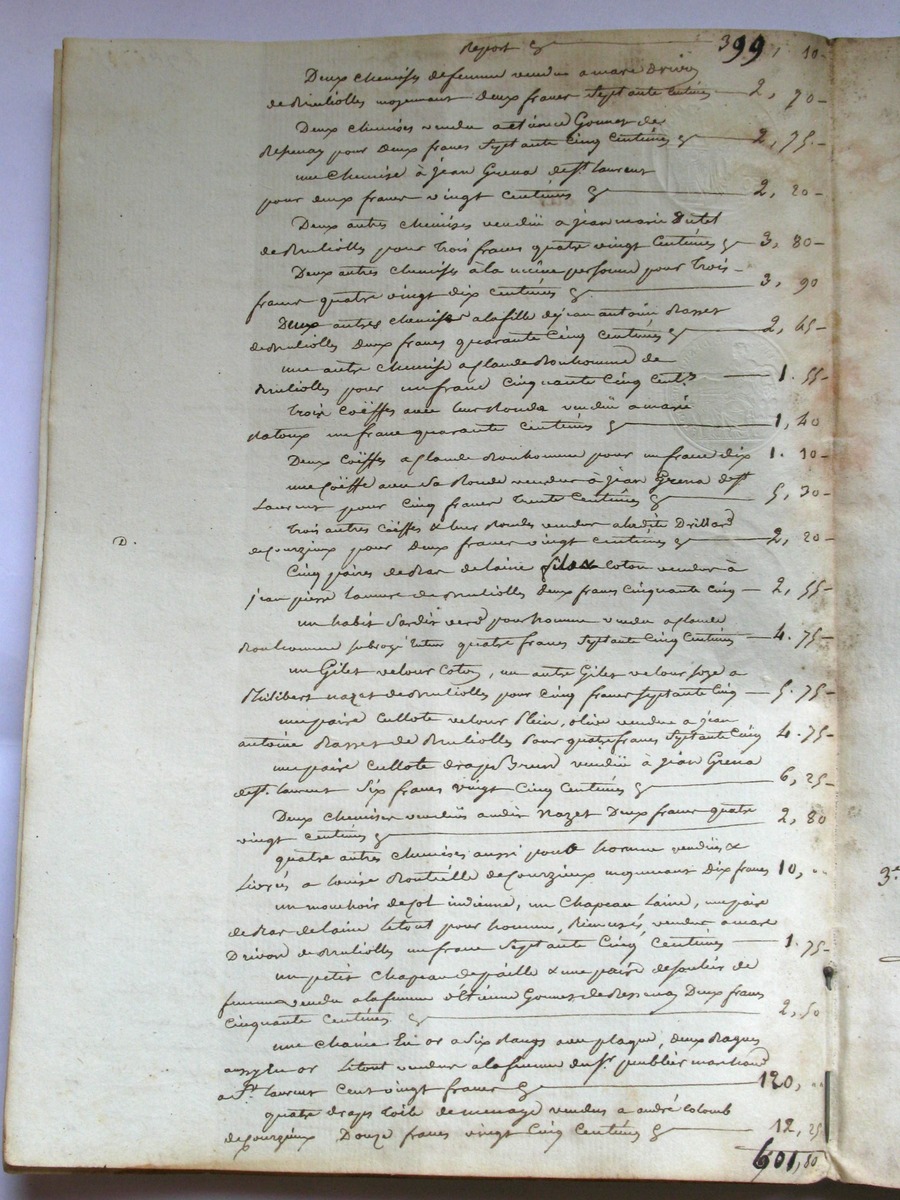 Report 399, 10
Deux chemises de femme vendus a marc Drivon
de Brulioles moyenant deux francs septante centimes 2, 70
Deux chemises vendu a etienne Gonnet de
Ressenay pour Deux francs septante Cinq Centimes 2, 75
une Chemise à jean Grena de st. laurent
pour deux francs vingt centimes 2, 20
Deux autres chemises vendüe a jean marie
de Brulioles pour trois francs quatre vingt Centimes 3, 80
Deux autres chemises à la même personne pour trois
francs quatre vingt dix centimes 3, 90
Deux autres chemise a la fille de jean antoine Rasset
de Brulioles Deux francs quarante Cinq Centimes 2, 45
une autre chemise a glaude Bonhomme de
Brulioles pour un franc Cinquante Cinq Cent.s 1. 55
trois Coëffes avec leur Ronde vendüe a marie
un franc quarante Centimes 1, 40
Deux Coëffes a glaude Bonhomme pour un franc dix 1. 10
une Coëffe avec sa Ronde vendue à jean Grena de st.
Laurent pour Cinq francs trente Centimes 5, 30
trois autres Coëffes & leur Rondes vendue a ladite Drillard
de Courzieux pour deux francs vingt Centimes 2, 20
D.
Cinq paires de Bas de laine fil & Coton vendue à
jean pierre de Brulioles deux francs Cinquante Cinq 2, 55
un habit Cardis verd pour homme vendu a glaude
Bonhomme subrogé tuteur quatre francs septante Cinq Centimes 4. 75
un Gilet velour Coton, un autre Gilet velour soye a
Philibert nazet de Brulioles pour Cinq francs septante Cinq 5. 75
une paire Cullote velour Plein, olive vendue a jean
antoine Rasset de Brulioles pour quatre francs septante Cinq 4. 75
une paire Cullote drap Brun vendüe à jean Grena
de st. laurent Six francs vingt Cinq Centimes 6, 25
Deux chemises vendües audit Nazet Deux francs quatre 2, 80
vingt centimes
quatre autres chemises aussi pour homme vendües &
Livrés a louise de Courzieux moyenant dix francs 10, ..
un mouchoir de Col indienne, un Chapeau laine, une paire
de Bas de laine le tout pour homme, vendue a marc
Drivon de Brulioles un franc septante Cinq Centimes 1. 75
un petit Chapeau de paille & une paire de souliers de
femme vendu a la femme d'étienne Gonnet de Ressenay Deux francs
Cinquante Centimes 2, 50
une Chaine En or a six Rangs avec plaque, deux Bagues
aussy En or le tout vendue a la femme du sr. peublier marchand
a St laurent Cent vingt francs 120, ..
quatre draps toile de menage vendus a andré Colomb
de Courzieux Douze francs vingt Cinq Centimes 12, 25
601, 80
3.e